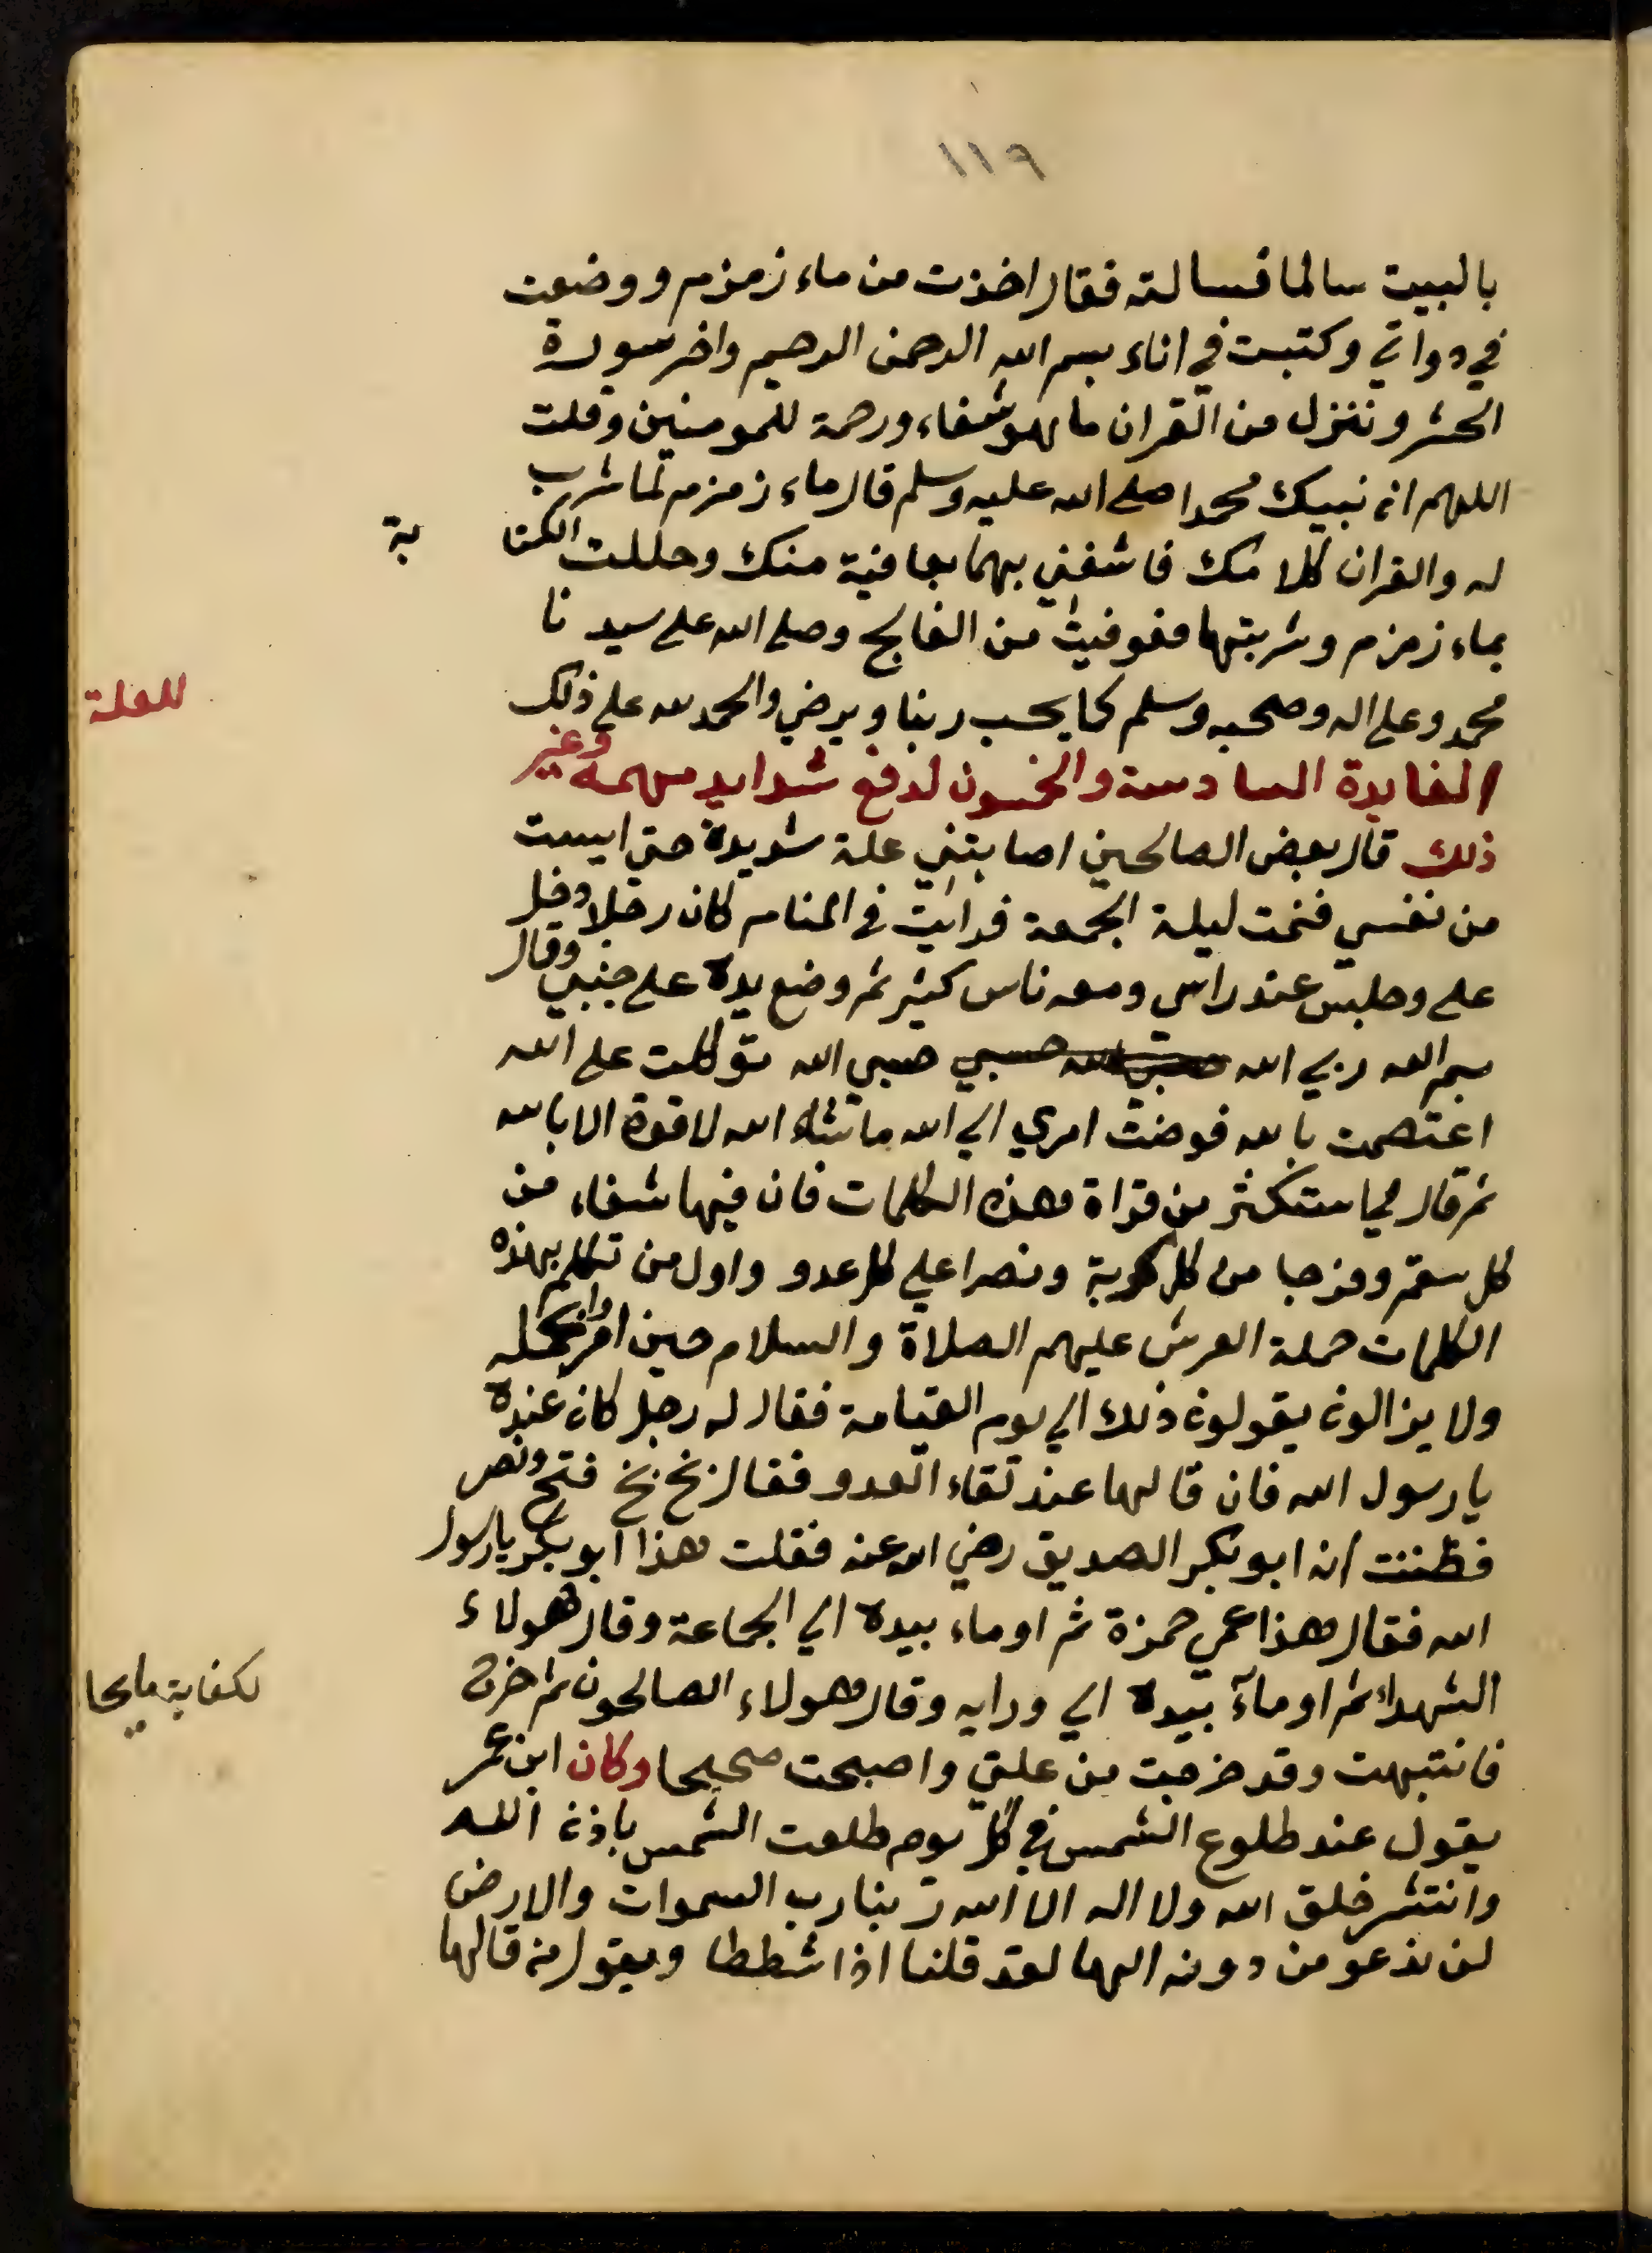 ١١٩
بالبيت سالما فسالته فقال اخذت من ماء زمزم ووضعت
في دواتي وكتبت في اناء بسم الله الرحمن الرحيم واخر سورة
الحشر وننزل من القران ما هو شفاء ورحمة للمومنين وقلت
اللهم ان نبيك محمدا صلى الله عليه وسلم قال ماء زمزم لما شرب
له والقران كلامك فاشفني بهما بعافية منك وحللت الكتابة
بماء زمزم وشربتها فعوفيت من الفالج وصلى الله على سيدنا
محمد وعلى اله وصحبه وسلم كما يحب ربنا ويرضي والحمد لله على ذلك
للعلة
الفايدة السادسة والخمسون لدفع شدايد مهمه وغير
ذلك قال بعض الصالحين اصابتني علة شديدة حتى ايست
من نفسي فنمت ليلة الجمعة فرايت في المنام كان رجلا دخل
على وجلس عند راسي ومعه ناس كثير ثم وضع يده على جنبي وقال
بسم الله ربي الله حسبي الله توكلت على الله
اعتصمت بالله فوضت امري الي الله ما شاء الله لا قوة الا بالله
ثم قال لي استكثر من قراة هذه الكلمات فان فيها شفاء من
كل سقم وفرجا من كل كربة ونصرا علي كل عدو واول من تكلم بهذه
الكلمات حملة العرش عليهم الصلاة والسلام حين امروا بحمله
ولا يزالون يقولون ذلك الي يوم القيامة فقال له رجل كان عنده
يا رسول الله فان قالها عند لقاء العدو فقال بخ بخ فتح ونصر
فظننت ان ابو بكر الصديق رضي الله عنه فقلت هذا ابو بكر يا رسول
الله فقال هذا عمي حمزة ثم اوماء بيده الي الجماعة وقال هولاء
الشهداء ثم اومآ بيده الي ورايه وقال هولاء الصالحون ثم خرج
لكفاية ما يخا
فانتبهت وقد خرجت من علتي واصبحت صحيحا وكان ابن عمر
يقول عند طلوع الشمس في كل يوم طلعت الشمس باذن الله
وانتشر خلق الله ولا اله الا الله ربنا رب السموات والارض
لن ندعو من دونه الها لقد قلنا اذا شططا ويقول من قالها